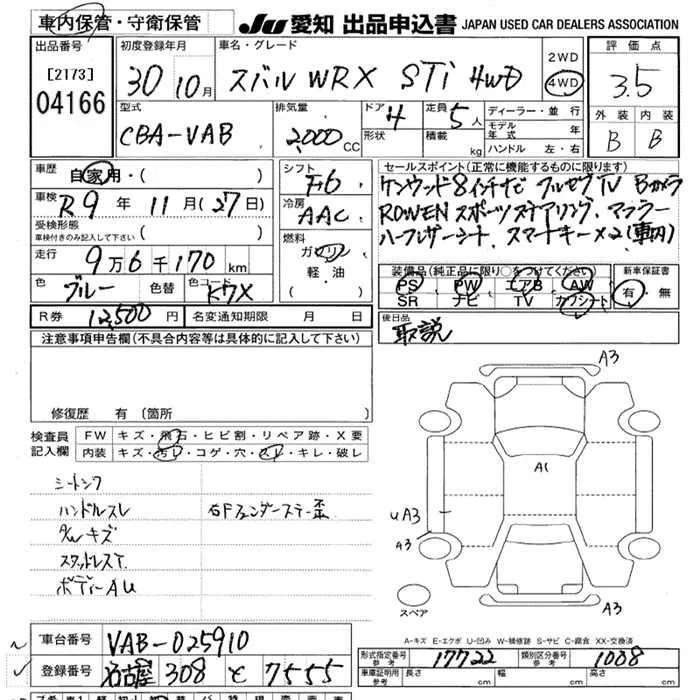 車内保管・守衛保管
JU 愛知 出品申込書 JAPAN USED CAR DEALERS ASSOCIATION
出品番号
[2173]
04166
初度登録年月
30 10月
車名・グレード
スバル WRX STi 4WD
2WD
4WD
評価点
3.5
外装 内装
B B
型式
CBA-VAB
排気量
2,000 CC
ドア 4
形状
定員 5人
積載 kg
ディーラー・並行
モデル年式 年
ハンドル 左・右
車歴
自家用・( )
車検
R9年 11月(27日)
受検形態
車検付きのみ記入して下さい ( )
走行
9万6千170km
色 ブルー 色替 色コード K7X
シフト
F6
冷房
AAC
燃料
ガソリン
軽油
( )
セールスポイント(正常に機能するものに限ります)
ケンウッド8インチナビ フルセグTV Bカメラ
ROWENスポーツステアリング、マフラー
ハーフレザーシート、スマートキー×2(車内)
装備品(純正品に限り○をつけてください)
PS PW エアB AW
SR ナビ TV カワシート
新車保証書
有・無
R券 12,500円
名変通知期限 月 日
後日品
取説
注意事項申告欄(不具合内容等は具体的に記入して下さい)
修復歴 有(箇所
検査員
記入欄
FW キズ・飛石・ヒビ割・リペア跡・X要
内装 キズ・汚レ・コゲ・穴・スレ・キレ・破レ
シートシワ
ハンドルスレ
A/Wキズ
スタッドレスT.
ボディーAU
右Fフェンダーステー歪
A3
A1
UA3
A3
A3
スペア
A-キズ E-エクボ U-凹み W-補修跡 S-サビ C-腐食 XX-交換済
車台番号 VAB-025910
登録番号 名古屋 308 と 7555
形式指定番号
参考
17722
類別区分番号
参考
1008
車庫証明用
参考
長さ cm 幅 cm 高さ cm